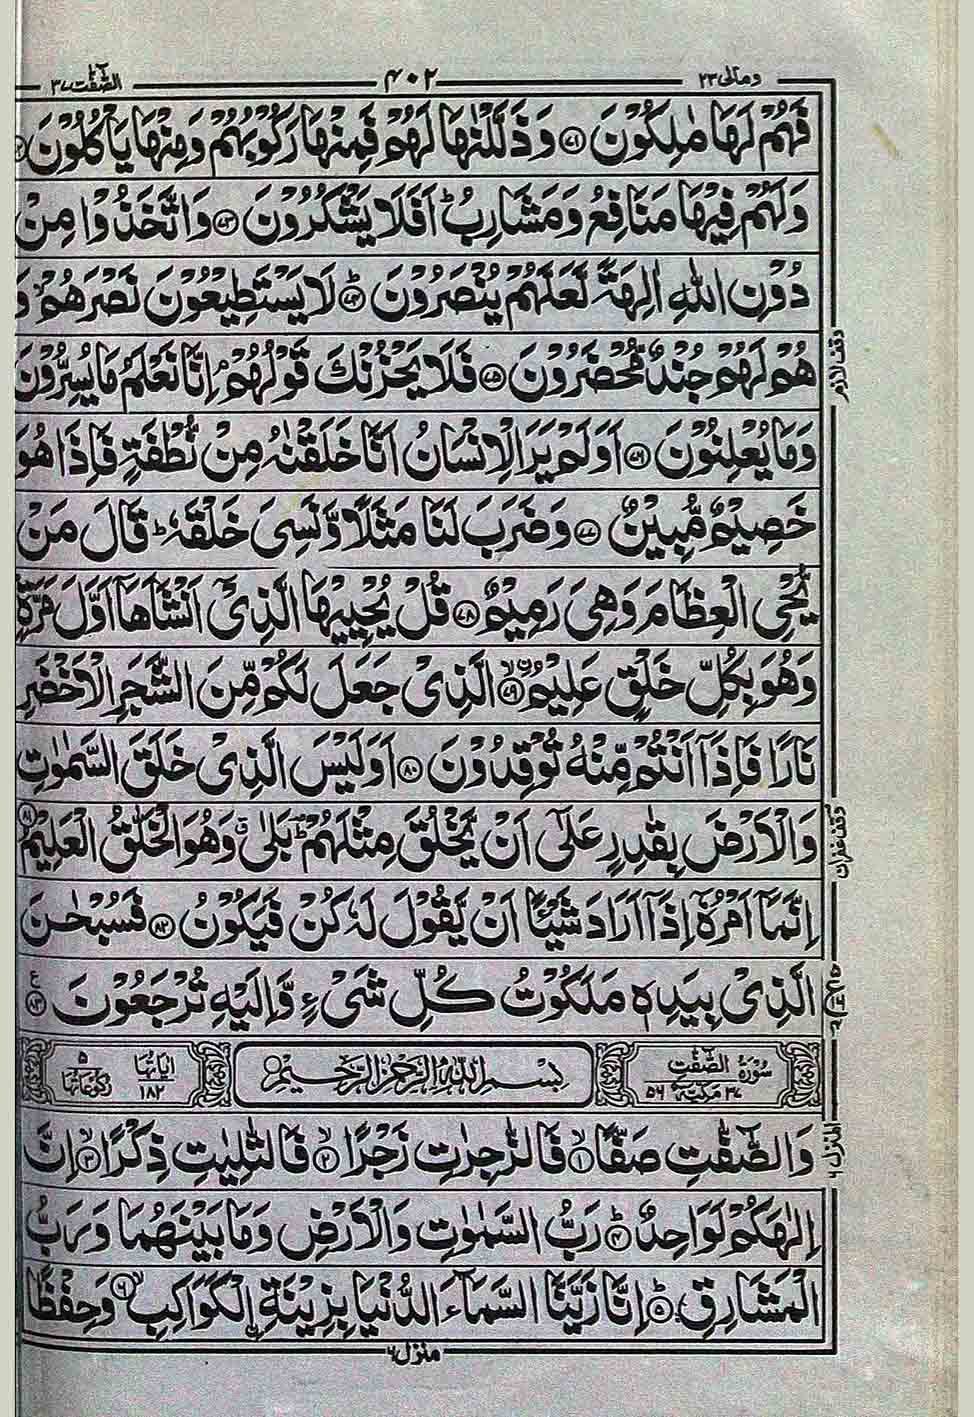 الصّٰٓفّٰت ٣٧ ۴۰۲ ومالی ٢٣
فَهُمْ لَهَا مٰلِكُوْنَ ﴿۷۱﴾ وَذَلَّلْنٰهَا لَهُمْ فَمِنْهَا رَكُوْبُهُمْ وَمِنْهَا يَاْكُلُوْنَ ﴿۷۲﴾
وَلَهُمْ فِيْهَا مَنَافِعُ وَمَشَارِبُ ؕ اَفَلَا يَشْكُرُوْنَ ﴿۷۳﴾ وَاتَّخَذُوْا مِنْ
دُوْنِ اللّٰهِ اٰلِهَةً لَّعَلَّهُمْ يُنْصَرُوْنَ ﴿۷۴﴾ لَا يَسْتَطِيْعُوْنَ نَصْرَهُمْ ۙ وَ
هُمْ لَهُمْ جُنْدٌ مُّحْضَرُوْنَ ﴿۷۵﴾ فَلَا يَحْزُنْكَ قَوْلُهُمْ ۘ اِنَّا نَعْلَمُ مَا يُسِرُّوْنَ
وقف لازم
وَمَا يُعْلِنُوْنَ ﴿۷۶﴾ اَوَلَمْ يَرَ الْاِنْسَانُ اَنَّا خَلَقْنٰهُ مِنْ نُّطْفَةٍ فَاِذَا هُوَ
خَصِيْمٌ مُّبِيْنٌ ﴿۷۷﴾ وَضَرَبَ لَنَا مَثَلًا وَّنَسِيَ خَلْقَهٗ ؕ قَالَ مَنْ
يُّحْيِ الْعِظَامَ وَهِيَ رَمِيْمٌ ﴿۷۸﴾ قُلْ يُحْيِيْهَا الَّذِيْٓ اَنْشَاَهَآ اَوَّلَ مَرَّةٍ ؕ
وَهُوَ بِكُلِّ خَلْقٍ عَلِيْمُ ۨۙ ﴿۷۹﴾ الَّذِيْ جَعَلَ لَكُمْ مِّنَ الشَّجَرِ الْاَخْضَرِ
نَارًا فَاِذَآ اَنْتُمْ مِّنْهُ تُوْقِدُوْنَ ﴿۸۰﴾ اَوَلَيْسَ الَّذِيْ خَلَقَ السَّمٰوٰتِ
وَالْاَرْضَ بِقٰدِرٍ عَلٰٓى اَنْ يَّخْلُقَ مِثْلَهُمْ ؕ بَلٰى ۗ وَهُوَ الْخَلّٰقُ الْعَلِيْمُ ﴿۸۱﴾
وقف غفران
اِنَّمَآ اَمْرُهٗٓ اِذَآ اَرَادَ شَيْئًا اَنْ يَّقُوْلَ لَهٗ كُنْ فَيَكُوْنُ ﴿۸۲﴾ فَسُبْحٰنَ
الَّذِيْ بِيَدِهٖ مَلَكُوْتُ كُلِّ شَيْءٍ وَّاِلَيْهِ تُرْجَعُوْنَ ﴿۸۳﴾ ع
سُوْرَةُ الصّٰٓفّٰتِ ٣٧ مَكِّيَّةٌ ٥٦ بِسْمِ اللّٰهِ الرَّحْمٰنِ الرَّحِيْمِ اٰيَاتُهَا ١٨٢ رُكُوْعَاتُهَا ٥
وَالصّٰٓفّٰتِ صَفًّا ۙ﴿۱﴾ فَالزّٰجِرٰتِ زَجْرًا ۙ﴿۲﴾ فَالتّٰلِيٰتِ ذِكْرًا ۙ﴿۳﴾ اِنَّ
المنزل ٦
اِلٰهَكُمْ لَوَاحِدٌ ؕ﴿۴﴾ رَبُّ السَّمٰوٰتِ وَالْاَرْضِ وَمَا بَيْنَهُمَا وَرَبُّ
الْمَشَارِقِ ؕ﴿۵﴾ اِنَّا زَيَّنَّا السَّمَآءَ الدُّنْيَا بِزِيْنَةِ ۨالْكَوَاكِبِ ۙ﴿۶﴾ وَحِفْظًا
منزل ٦